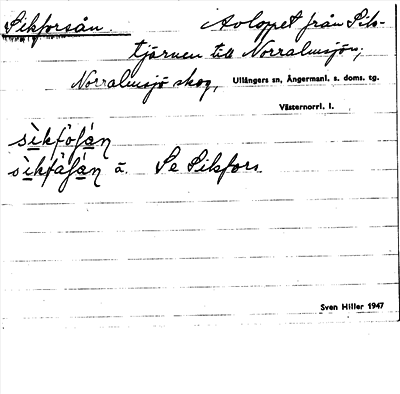 Sikforsån. Avloppet från Sik-
tjärnen till Norralmsjön;
Norralmsjö skog, Ullångers sn, Ångermanl. s. doms. tg.
Västernorrl. l.
sìkfòṣán
sìkfàṣán ä. Se Sikfors.
Sven Hiller 1947